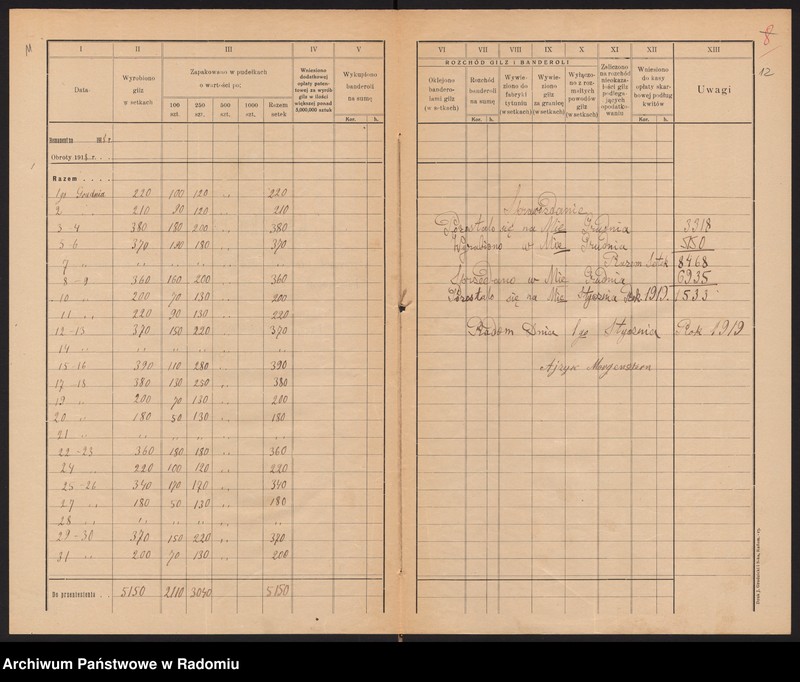 8
12
I II III IV V
Data
Wyrobiono gilz w setkach
Zapakowano w pudełkach o wartości po:
100 szt. 250 szt. 500 szt. 1000 szt. Razem setek
Wniesiono dodatkowej opłaty patentowej za wyrób gilz w ilości większej ponad 5,000,000 sztuk
Wykupiono banderoli na sumę
Kor. h.
Remanent na 191 r.
Obroty 191 r.
Razem
1go Grudnia 220 100 120 „ 220
2 „ 210 90 120 „ 210
3-4 380 180 200 „ 380
5-6 370 190 180 „ 370
7 „ „ „ „ „
8-9 360 160 200 „ 360
10 „ 200 70 130 „ 200
11 „ 220 90 130 „ 220
12-13 370 150 220 „ 370
14 „ „ „ „ „
15-16 390 110 280 „ 390
17-18 380 130 250 „ 380
19 „ 200 70 130 „ 200
20 „ 180 50 130 „ 180
21 „ „ „ „ „
22-23 360 180 180 „ 360
24 220 100 120 „ 220
25-26 340 170 170 „ 340
27 „ 180 50 130 „ 180
28 „ „ „ „ „
29-30 370 150 220 „ 370
31 „ 200 70 130 „ 200
Do przeniesienia 5150 2110 3040 5150
VI VII VIII IX X XI XII XIII
ROZCHÓD GILZ I BANDEROLI
Oklejono banderolami gilz (w setkach)
Rozchód banderoli na sumę
Kor. h.
Wywieziono do fabryki tytuniu (w setkach)
Wywieziono gilz za granicę (w setkach)
Wyłączono z rozmaitych powodów gilz (w setkach)
Zaliczono na rozchód nieokazałości gilz podlegających opodatkowaniu
Wniesiono do kasy opłaty skarbowej podług kwitów
Kor. h.
Uwagi
Sprawozdanie
Pozostało się na Mie Grudnia 3318
Wyrobiono w Mie Grudnia 5150
Razem Setek 8468
Sprzedano w Mie Grudnia 6935
Pozostało się na Mie Stycznia Rok 1919. 1533
Radom Dnia 1go Stycznia Rok 1919
Ajzyk Morgensztern
Archiwum Państwowe w Radomiu